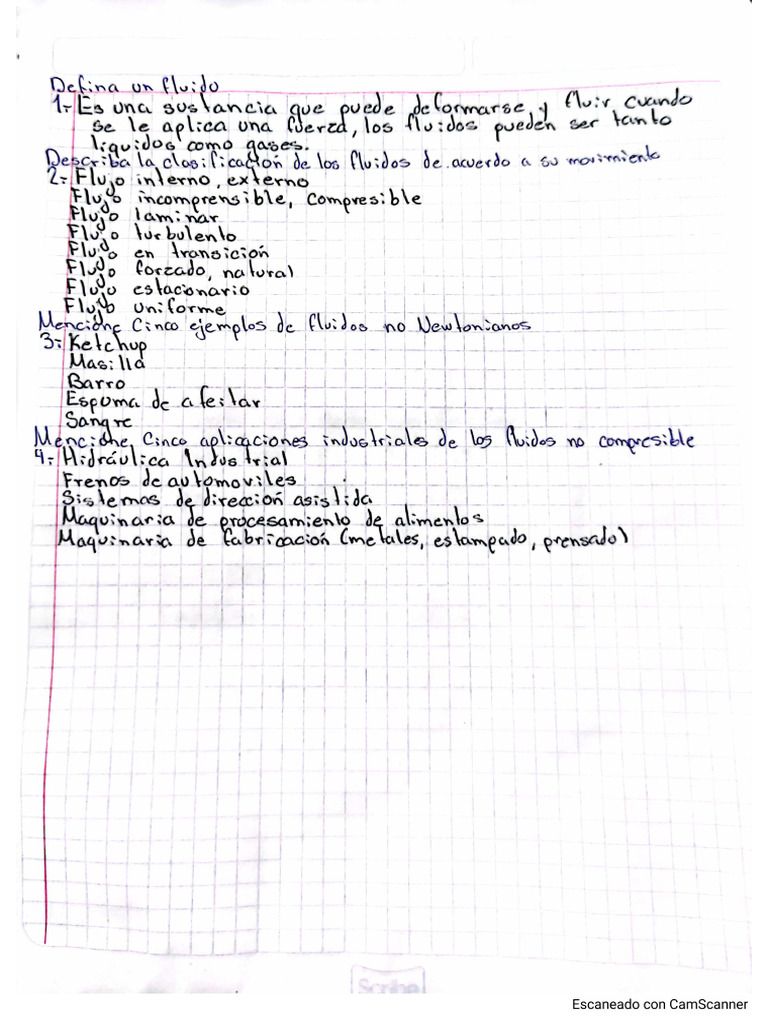 Defina un fluido
1.- Es una sustancia que puede deformarse y fluir cuando
se le aplica una fuerza, los fluidos pueden ser tanto
liquidos como gases.
Describa la clasificación de los fluidos de acuerdo a su movimiento
2.- Flujo interno, externo
Flujo incomprensible, compresible
Flujo laminar
Flujo turbulento
Flujo en transición
Flujo forzado, natural
Flujo estacionario
Flujo uniforme
Mencione Cinco ejemplos de fluidos no Newtonianos
3.- Ketchup
Masilla
Barro
Espuma de afeitar
Sangre
Mencione Cinco aplicaciones industriales de los fluidos no compresible
4.- Hidráulica Industrial
Frenos de automoviles
Sistemas de dirección asistida
Maquinaria de procesamiento de alimentos
Maquinaria de fabricación (metales, estampado, prensado)
Scribe
Escaneado con CamScanner